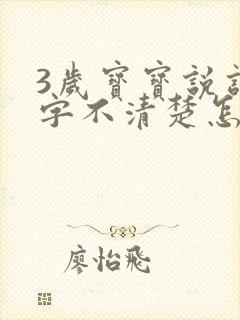 3歲寶寶說
字不清楚怎
廖怡飛